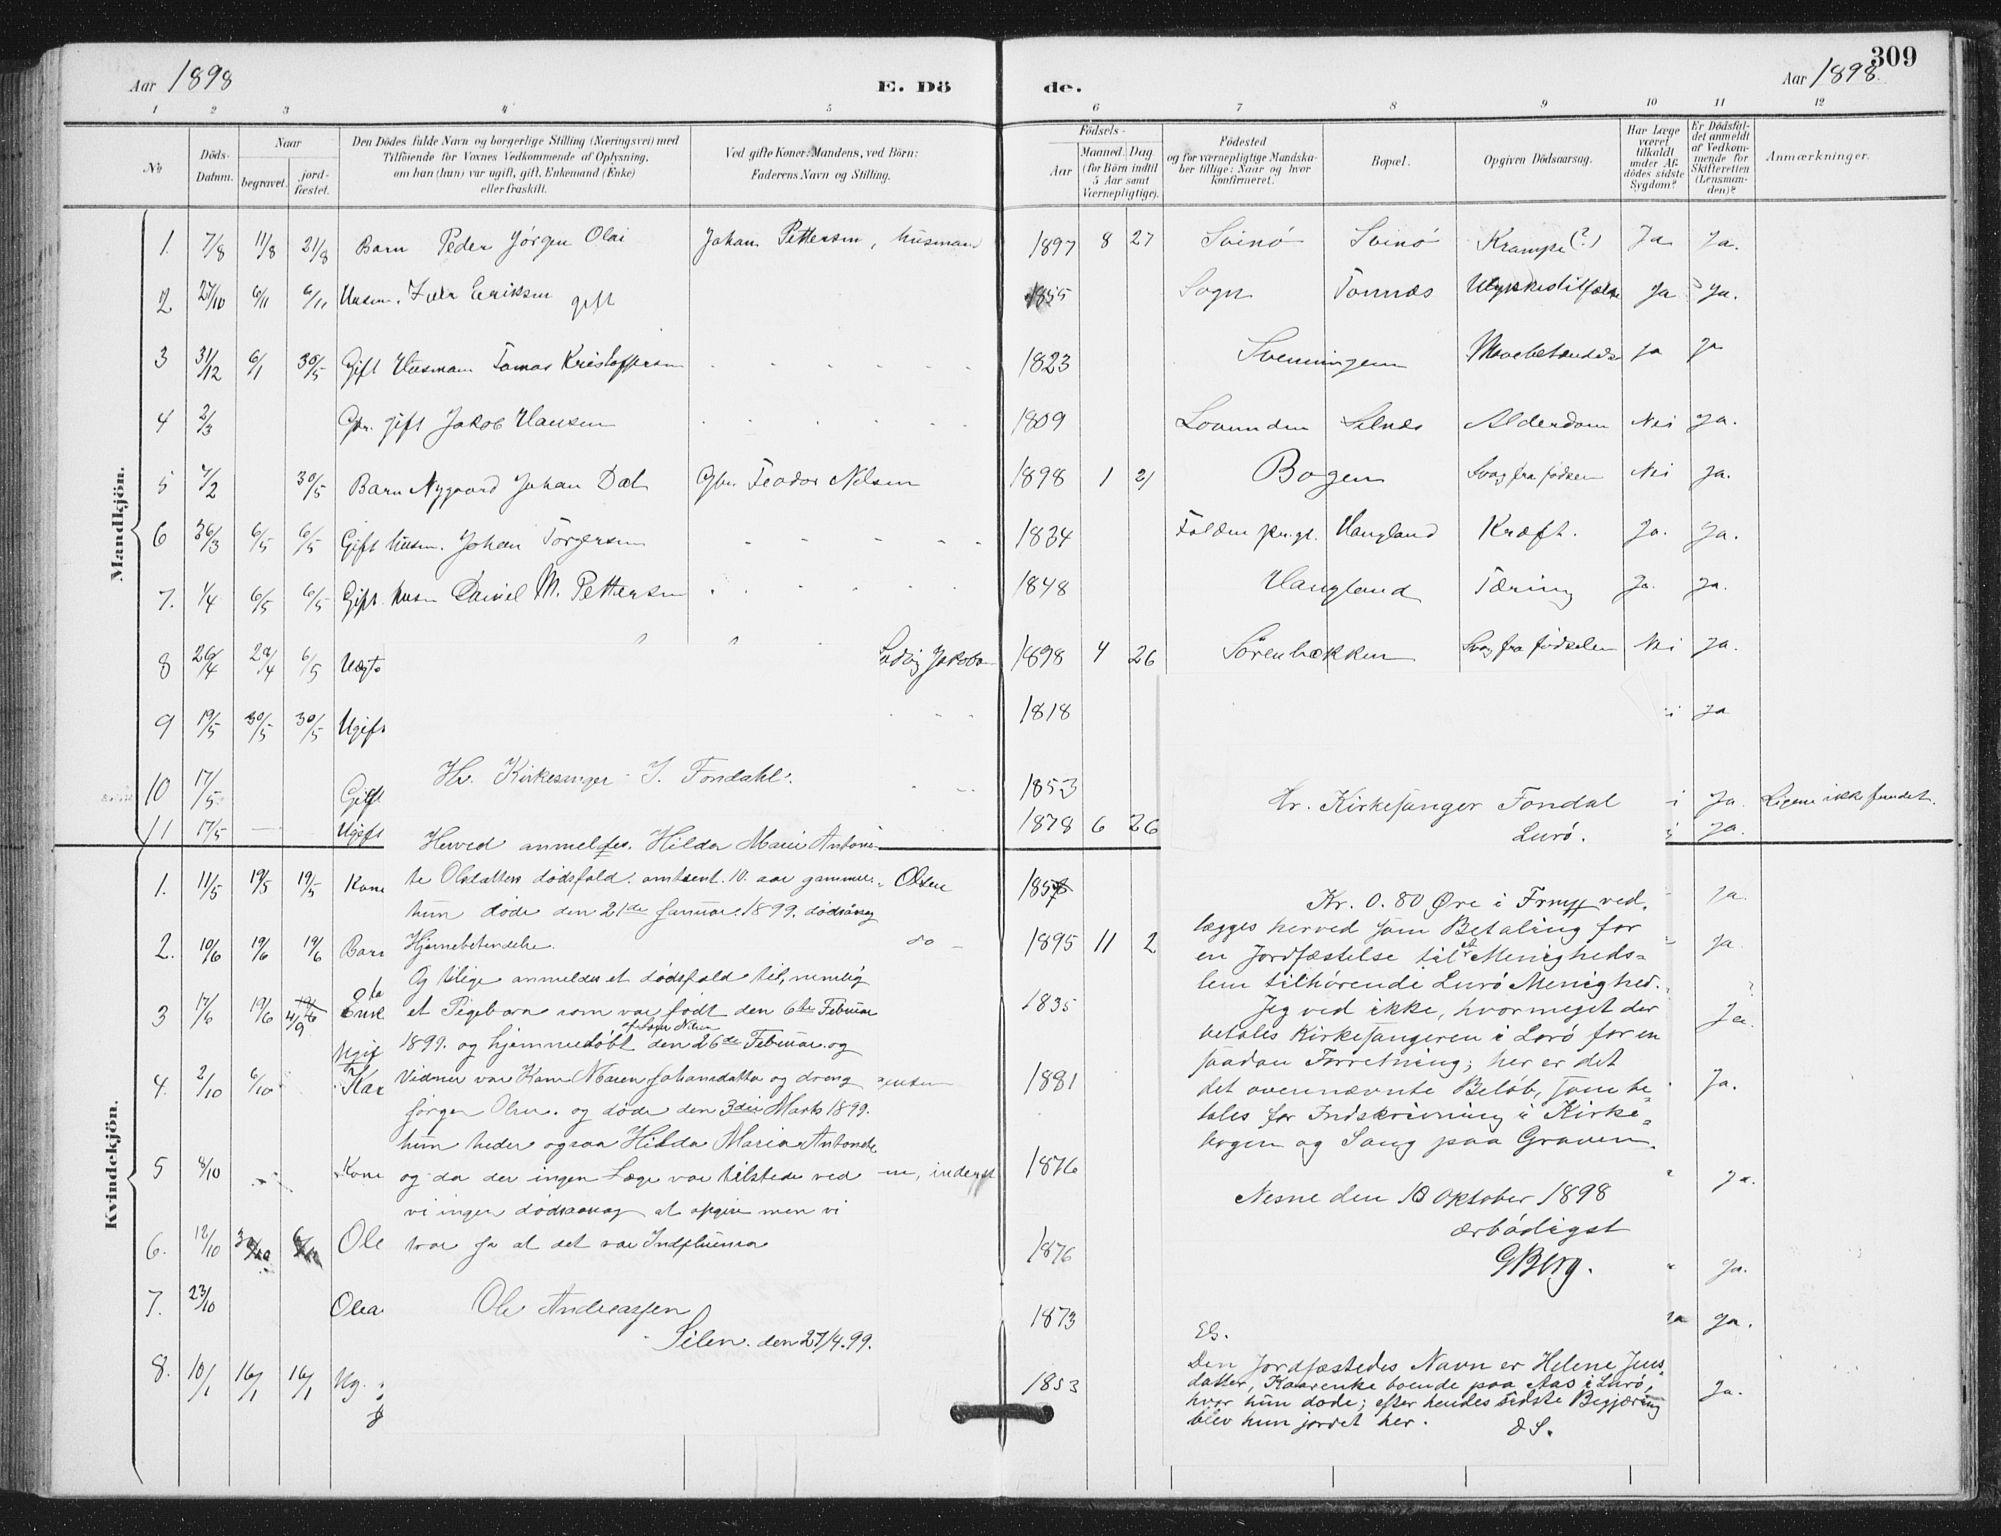 Aar 1898
E. Dö
de.
309
Aar 1898.
1 2 3 4 5 6 7 8 9 10 11 12
No
Döds-Datum.
Naar
begravet.
jord-fæstet.
Den Dödes fulde Navn og borgerlige Stilling (Næringsvei) med
Tilföiende for Voxnes Vedkommende af Oplysning,
om han (hun) var ugift, gift, Enkemand (Enke)
eller fraskilt.
Ved gifte Koner: Mandens, ved Börn:
Faderens Navn og Stilling.
Födsels-
Aar
Maaned. Dag
(for Börn indtil
5 Aar samt
Værnepligtige).
Födested
og for værnepligtige Mandska-
ber tillige: Naar og hvor
konfirmeret.
Bopæl.
Opgiven Dödsaarsag.
Har Læge
været
tilkaldt
under Af-
dödes sidste
Sygdom?
Er Dödsfal-
det anmeldt
af Vedkom-
mende for
Skifteretten
(Lensman-
den)?
Anmærkninger.
Mandkjön.
1. 7/8 11/8 21/8 Barn Peder Jörgen Olai Johan Pettersen, husmand 1897 8 27 Svinö Svinö Krampe (?) Ja Ja.
2 27/10 6/11 6/11 Husm. Eriksen gift 1855 Sogn Tonnæs Ulykkestilfælde Ja Ja.
3 31/12 6/1 30/5 Gift Husmann Tomas Kristoffersen 1823 Svenningen Mavebetændelse Ja Ja
4 2/3 Gbr. gift Jakob Hansen 1809 Lovunden Selnes Alderdom Nei Ja.
5 7/2 30/5 Barn Nygaard Johan Dal Gbr. Teodor Nilsen 1898 1 21 Bogen Svag fra födsen Nei Ja.
6 6/5 6/5 Gift husm. Johan Torgersen 1834 Folden Prgj. Haugland Kræft. Ja. Ja.
7. 1/4 6/5 6/5 Gift husm Daniel M. Pettersen 1848 Haugland Tæring Ja. Ja.
8 26/4 29/4 6/5 Uægte Ludvig Jakobsen 1898 4 26 Sörenbækken Svag fra födselen Nei Ja.
9 19/5 30/5 30/5 Ugift 1818 Ja
10 17/5 Gift 1853 Ja. Ligene ikke fundet.
11 17/5 Ugift 1878 6 26 Ja.
Kvindekjön.
1. 11/5 19/5 19/5 Kone Olsen 1857 Ja.
2. 10/6 19/6 19/6 Barn do 1895 11 2 Ja.
3 17/6 19/6 4/9 Enk 1835 Ja.
4. 2/10 6/10 Ugif Kar 1881 Ja.
5 8/10 Kone en, inderst 1876 Ja.
6. 12/10 Ole 1876 Ja.
7. 23/10 Olea 1873 Ja Ja.
8. 10/1 16/1 16/1 Ug. 1853 Ja.
Hr. Kirkesanger J. Fondahl.
Herved anmeldes Hilda Marie Antoni-
te Olsdatters dödsfald omtrent 10. aar gammel.
hun döde den 21de Januar 1899. dödsaarsag
Hjernebetendelse.
Og tilige anmeldes et dödsfald til, nemlig
et Pigebarn som var födt den 6te Februar
1899. og hjemmedöbt den 26de Februar og
Vidner var Kone Maren Johansdatter og dreng
Jörgen Olsen. og döde den 3die Marts 1899.
hun heder ogsaa Hilda Maria Antonete
og da der ingen Læge var tilstede ved
vi ingen dödsaarsag at opgive men vi
tror ja at det var Indfluensa
Ole Andreassen
Silen. den 27/4.99.
Hr. Kirkesanger Fondal
Lurö.
Kr. 0.80 Øre i Frmrk ved-
lægges herved som Betaling for
en Jordfæstelse til et Menigheds-
lem tilhørende Lurö Menighed.
Jeg ved ikke, hvormeget der
betales Kirkesangeren i Lurö for en
saadan Forretning; her er det
det ovennævnte Beløb, som be-
tales for Indskrivning i Kirke-
bogen og Sang paa Graven.
Nesne den 18 Oktober 1898
ærbödigst
GBerg.
ES.
Den Jordfæstedes Navn er Helene Jens-
datter, Kaarenke boende paa Aas i Lurö,
hvor hun døde; efter hendes sidste Begjæring
blev hun jordet her.
D S.